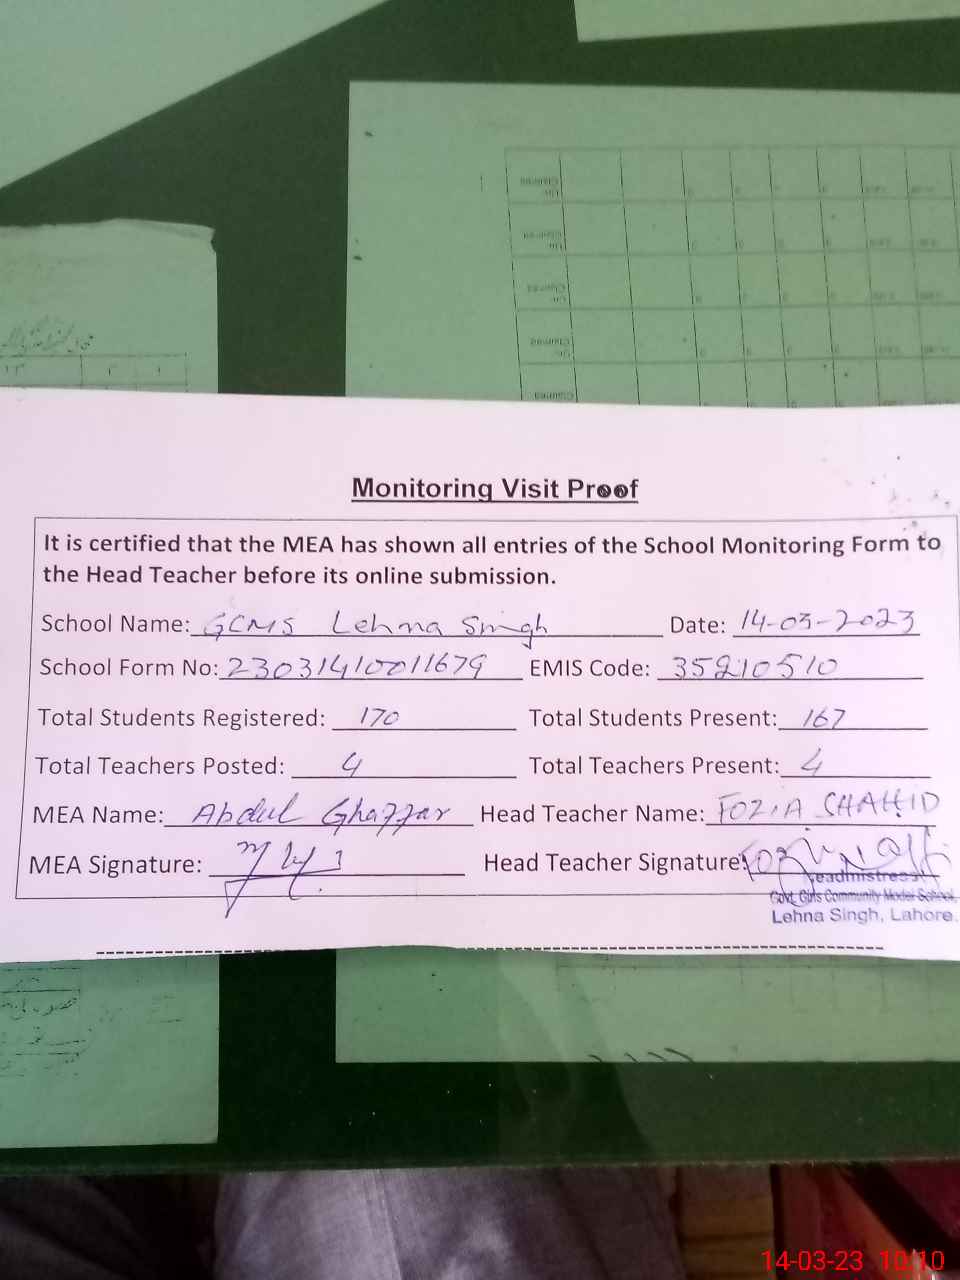 Monitoring Visit Proof
It is certified that the MEA has shown all entries of the School Monitoring Form to
the Head Teacher before its online submission.
School Name: GCMS Lehna Singh Date: 14-03-2023
School Form No: 23031410011679 EMIS Code: 35210510
Total Students Registered: 170 Total Students Present: 167
Total Teachers Posted: 4 Total Teachers Present: 4
MEA Name: Abdul Ghaffar Head Teacher Name: FOZIA SHAHID
MEA Signature: Head Teacher Signature:
Headmistress
Govt. Girls Community Model School,
Lehna Singh, Lahore.
14-03-23 10:10